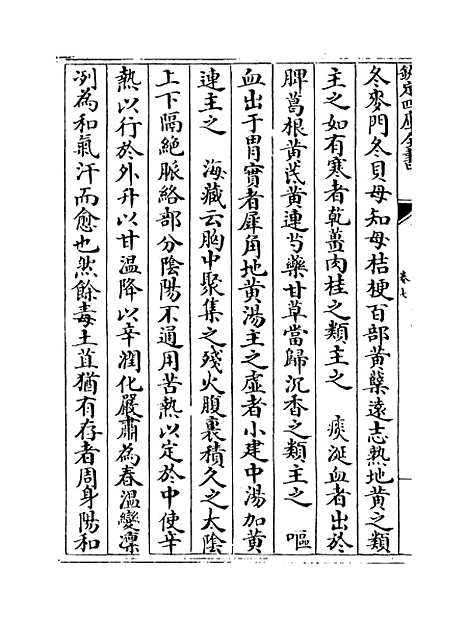 欽定四庫全書
卷七
冬麥門冬貝母知母桔梗百部黄蘗遠志熱地黄之類
主之如有寒者乾薑肉桂之類主之　痰涎血者出於
脾葛根黄芪黄連芍藥甘草當歸沉香之類主之　嘔
血出于胃實者犀角地黄湯主之虚者小建中湯加黄
連主之　海藏云胸中聚集之殘火腹裏積久之太陰
上下隔絶脈絡部分陰陽不通用苦熱以定於中使辛
熱以行於外升以甘温降以辛潤化嚴肅為春温變凛
冽為和氣汗而愈也然餘毒土苴猶有存者周身陽和